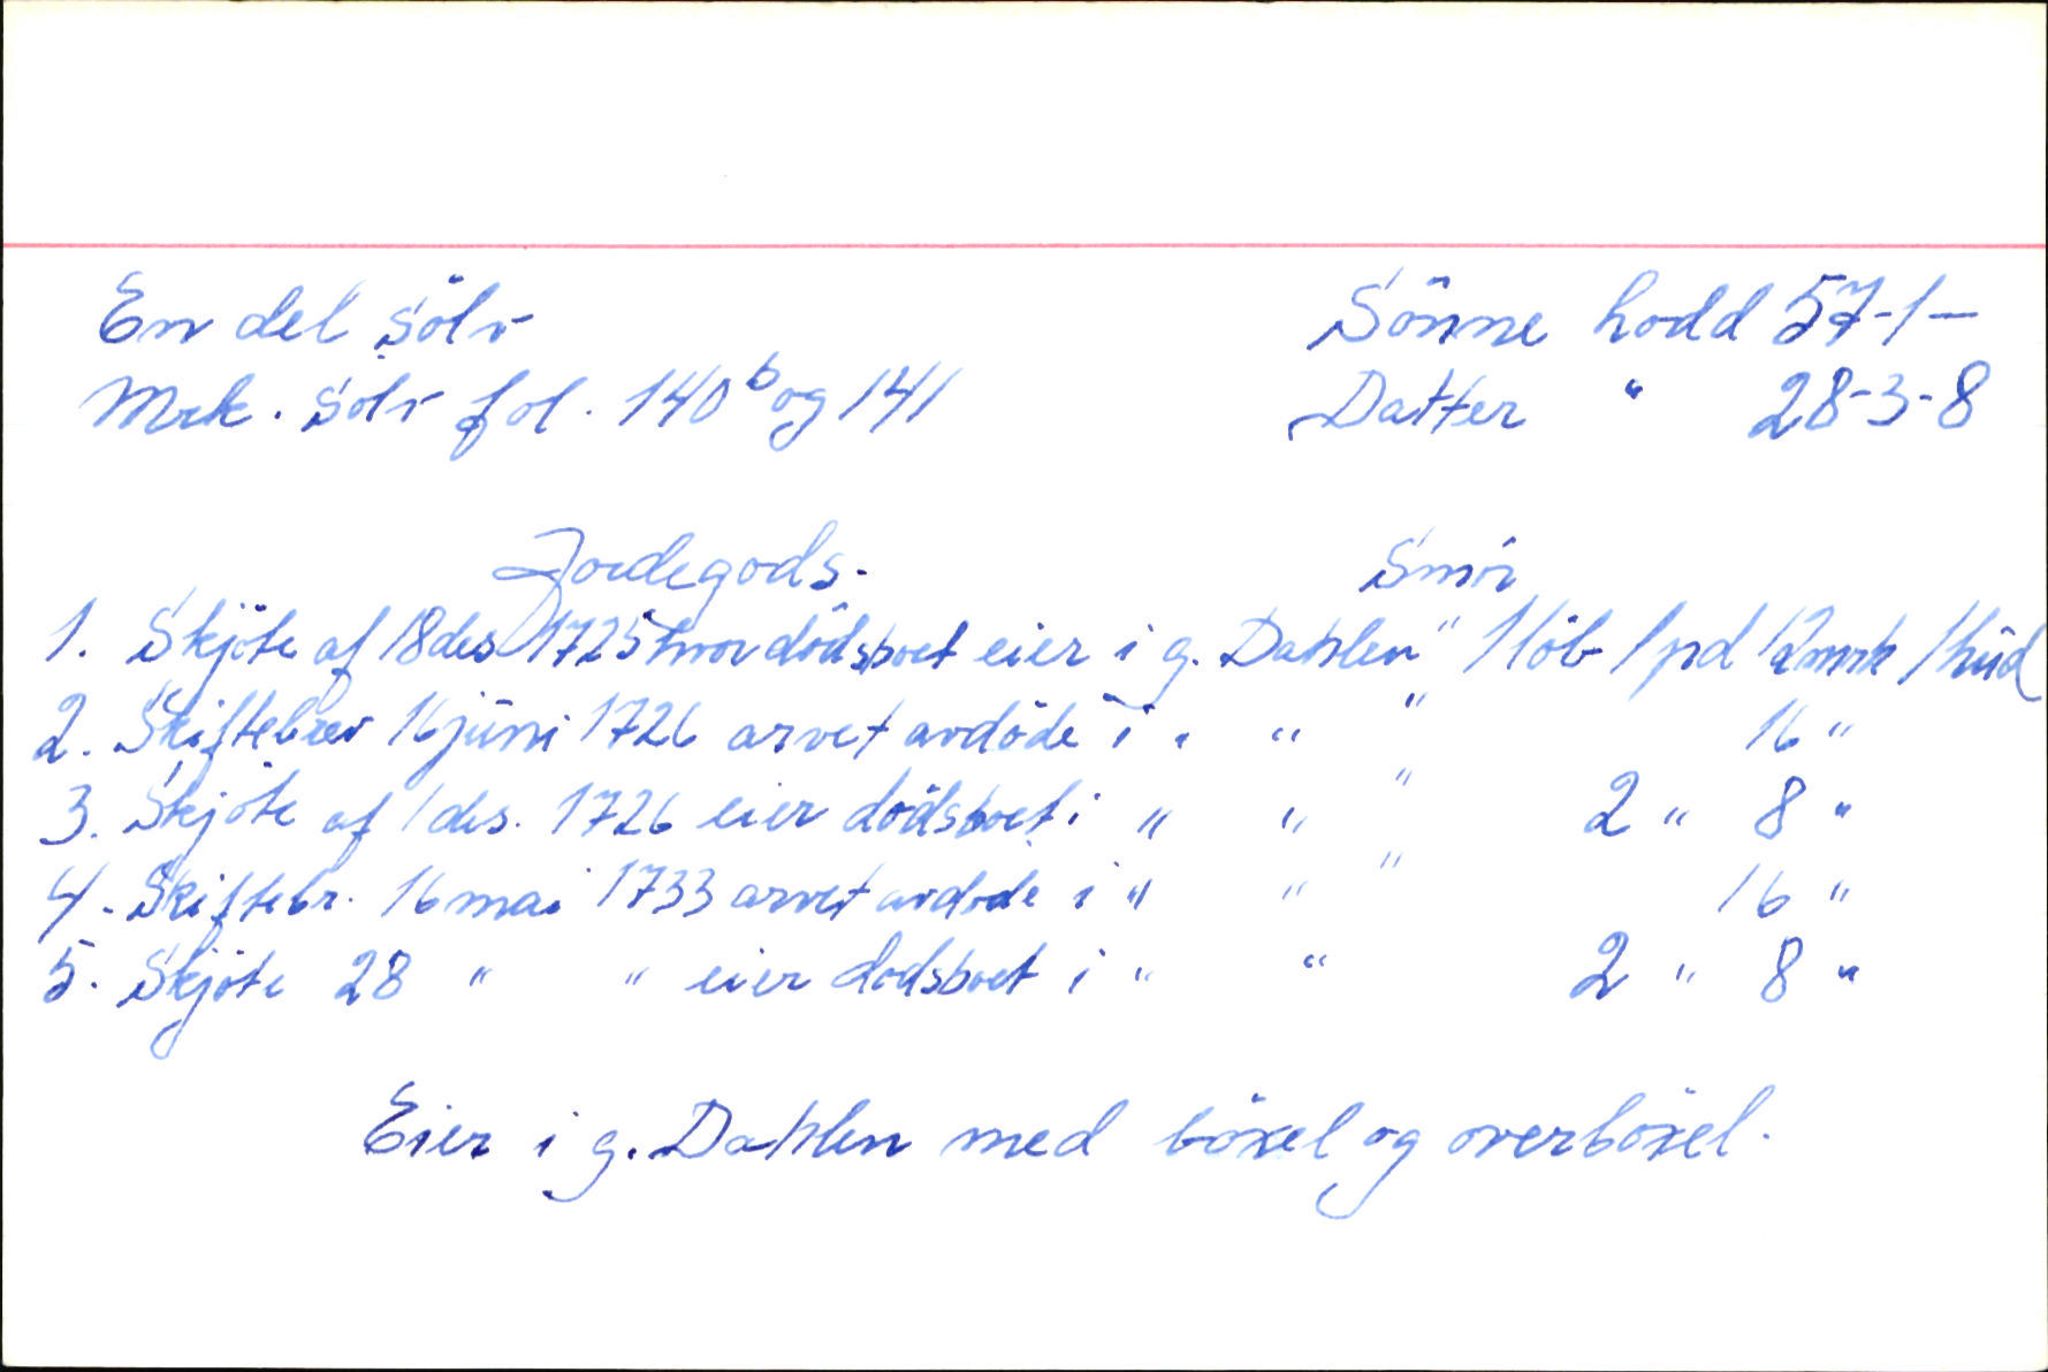 En del sölv
Sönne lodd 57-1-
Mrk. sölv fol. 140b og 141
Datter " 28-3-8
Jordegods. Smör
1. Skjöte af 18 des 1725 hvor dödsboet eier i g. Dahlen" 1 löb 1 pd 12 mrk 1 hud
2. Skiftebrev 16 juni 1726 arvet avdöde i " " " 16 "
3. Skjöte af 1 des. 1726 eier dödsboet i " " " 2 " 8 "
4. Skiftebr. 16 mai 1733 arvet avdöde i " " " 16 "
5. Skjöte 28 " " eier dödsboet i " " 2 " 8 "
Eier i g. Dahlen med böxel og overböxel.